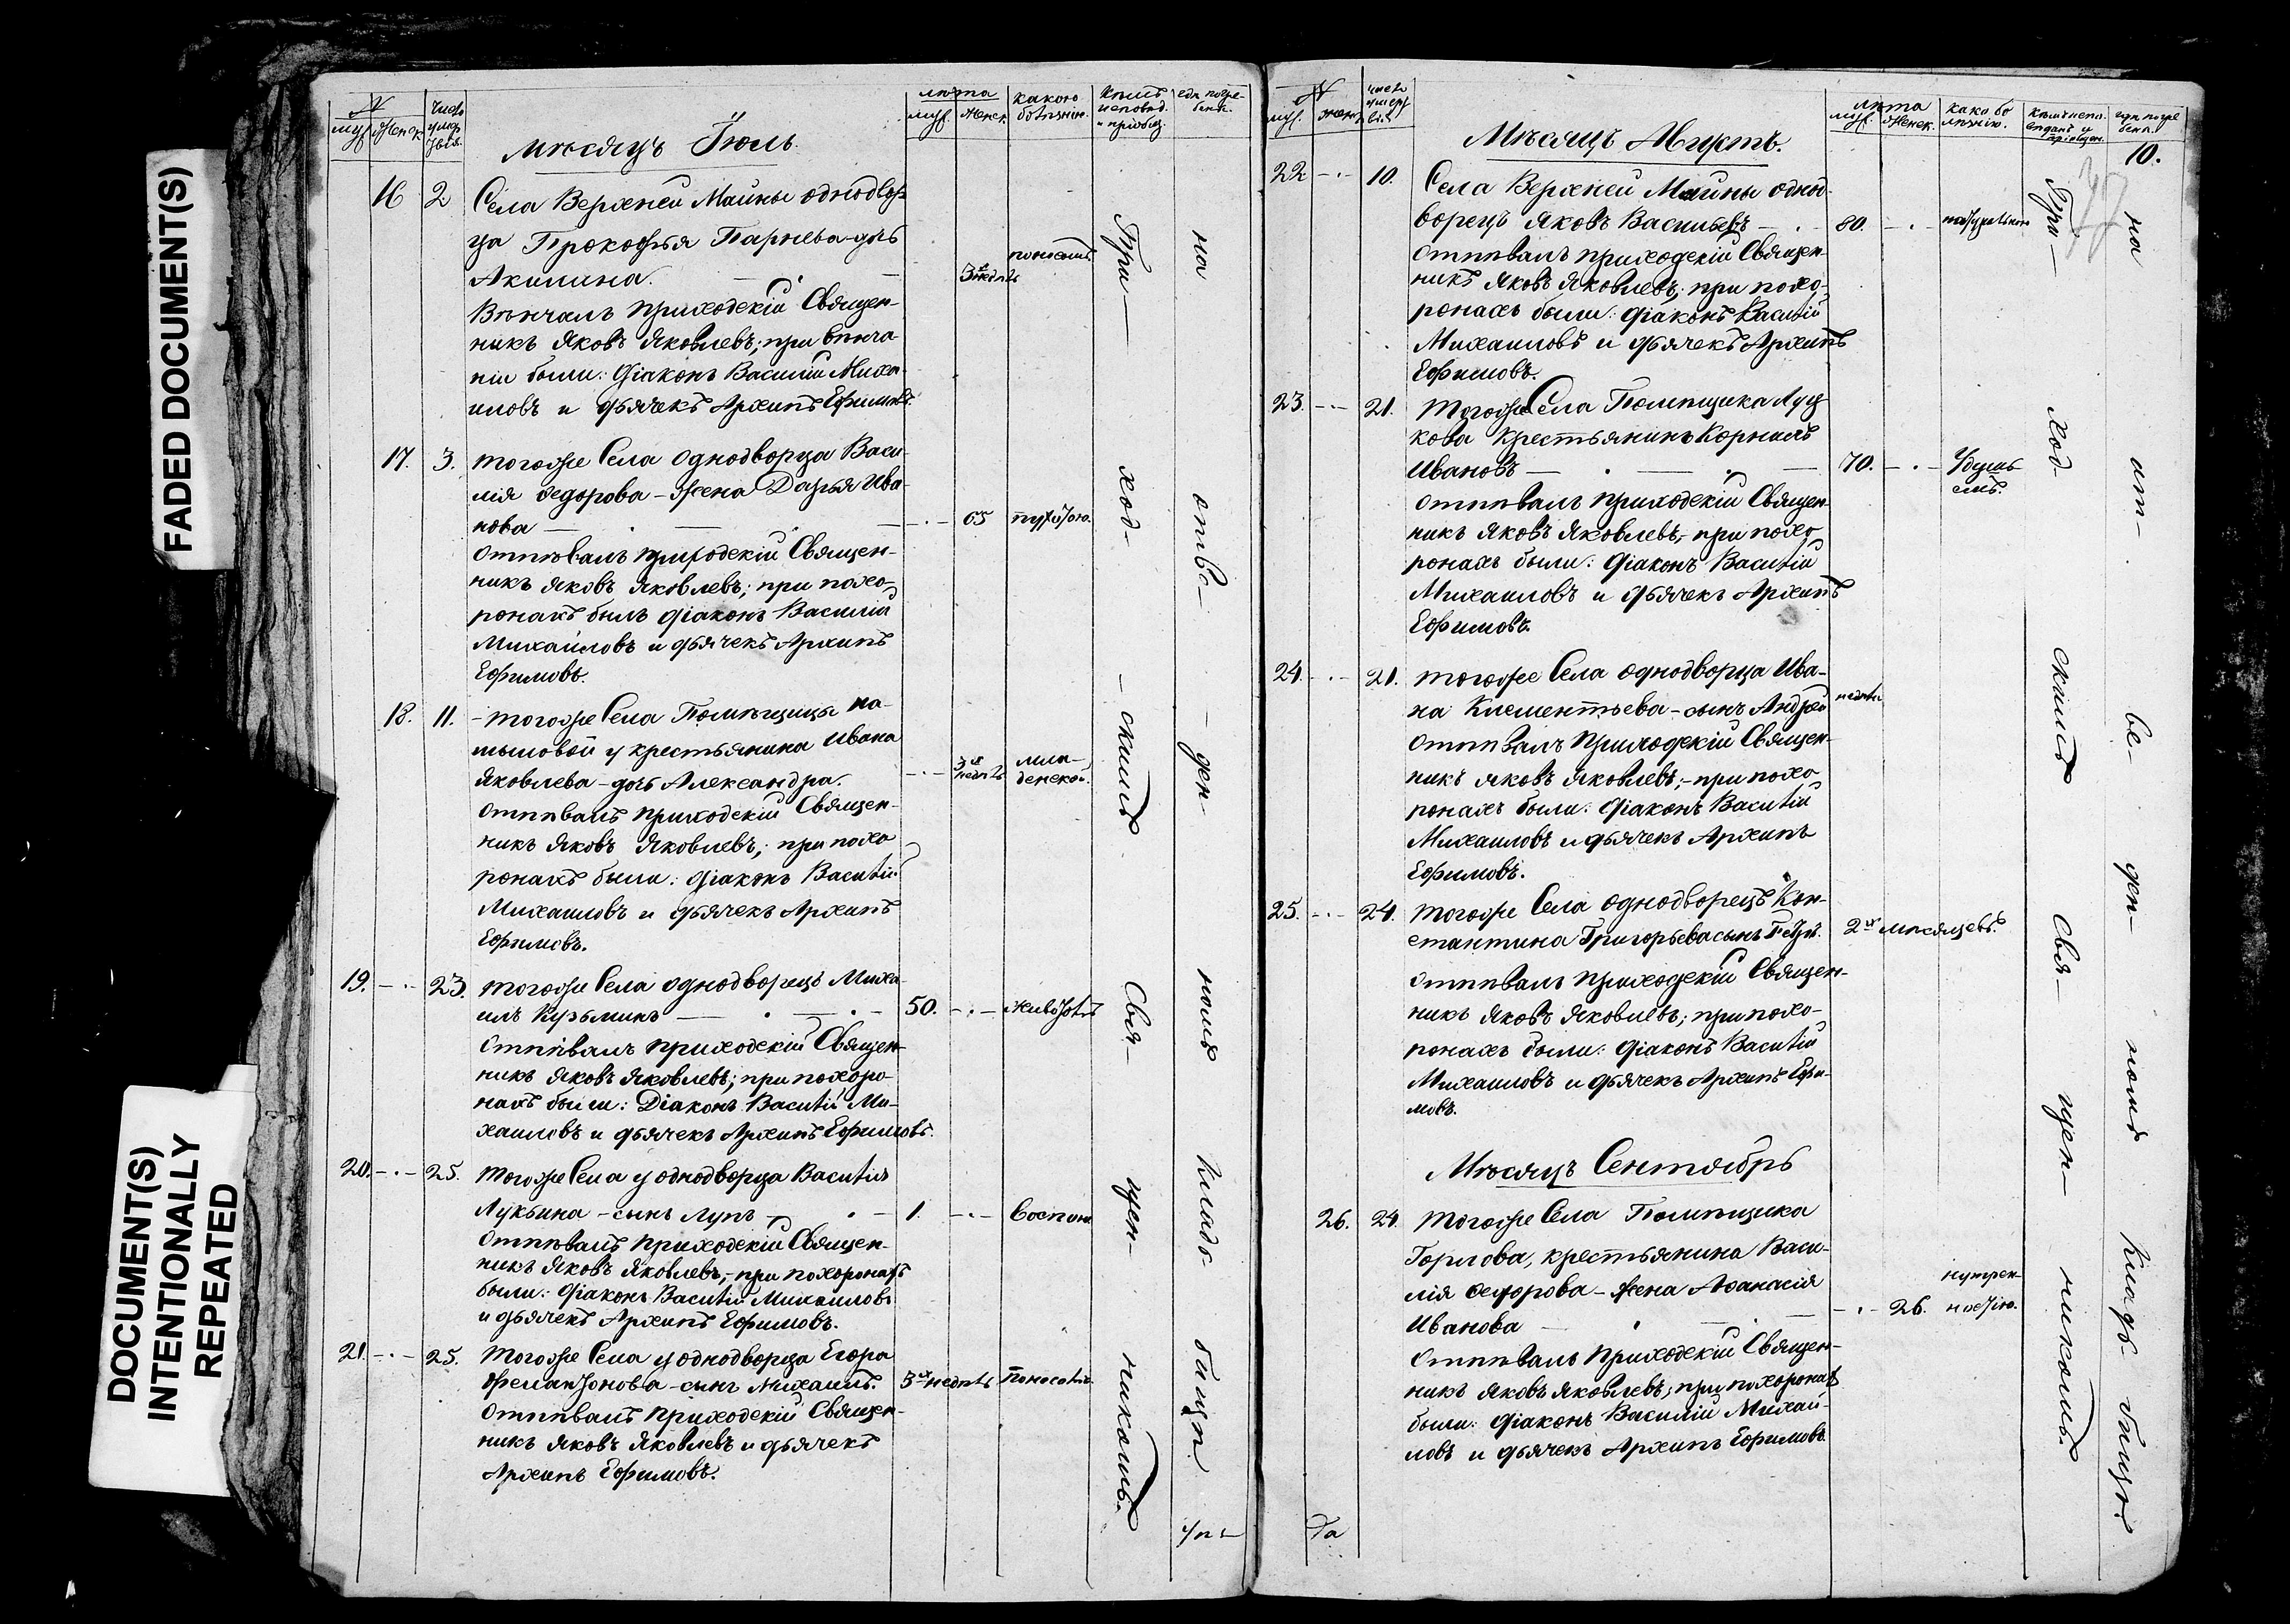 FADED DOCUMENT(S)
DOCUMENT(S)
INTENTIONALLY
REPEATED
№
муж. женск.
число
умер
лѣта
муж. женск.
какою
болѣзнію.
кѣмъ
исповѣд.
и пріобщ.
гдѣ погре-
бенъ.
мѣсяцъ Іюль.
16 2 Села Верхней Майны однодвор-
ца Прокофья Парнева дочь
Акилина. 3х недѣль поносомъ
Вѣнчалъ приходскій Священ-
никъ Яковъ Яковлевъ; при вѣнча-
ніи были: діаконъ Василій Миха-
иловъ и дьячекъ Архипъ Ефимовъ.
17. 3. тогоже Села однодворца Васи-
лія Ѳедорова - жена Дарья Ива-
нова 65
отпѣвалъ приходскій Священ-
никъ Яковъ Яковлевъ; при похо-
ронахъ былъ діаконъ Василій
Михайловъ и дьячекъ Архипъ
Ефимовъ.
18. 11. - тогоже Села Помѣщицы На-
мыловой у крестьянина Ивана
Яковлева - дочь Александра. 3х недѣль мла-
денской.
отпѣвалъ приходскій Священ-
никъ Яковъ Яковлевъ; при похо
ронахъ были: діаконъ Василій
Михаиловъ и дьячекъ Архипъ
Ефимовъ.
19. 23. тогоже Села однодворецъ Миха-
илъ Кузьминъ 50. животомъ
отпѣвалъ приходскій Священ-
никъ Яковъ Яковлевъ; при похоро-
нахъ были: Діаконъ Василій Ми-
хаиловъ и дьячекъ Архипъ Ефимовъ.
20. 25. тогоже Села у однодворца Василія
Лукьина - сынъ Лупъ 1. воспою
отпѣвалъ приходскій Священ-
никъ Яковъ Яковлевъ; при похоронахъ
были: діаконъ Василій Михаиловъ
и дьячекъ Архипъ Ефимовъ.
21. 25. тогоже Села у однодворца Егора
Филантонова - сынъ Михаилъ. 3х недѣль Поносомъ
отпѣвалъ приходскій Священ-
никъ Яковъ Яковлевъ и дьячекъ
Архипъ Ефимовъ.
При- ход- скимъ Свя- щен- никомъ.
на отве- ден- номъ кладб- бищѣ.
№
муж. женск.
число
умерт
лѣта
муж. женск.
како бо
лѣзнію.
гдѣ погре
бенъ.
10.
Мѣсяцъ Августъ.
22 10. Села Верхней Майны однод-
ворецъ Яковъ Васильевъ 80. натуральною
отпѣвалъ приходскій Священ-
никъ Яковъ Яковлевъ; при похо-
ронахъ были: діаконъ Василій
Михаиловъ и дьячекъ Архипъ
Ефимовъ.
23. 21. тогоже Села Помѣщика Луц
кова крестьянинъ Корнилъ
Ивановъ 70. Удушь
емъ.
отпѣвалъ приходскій Священ-
никъ Яковъ Яковлевъ; при похо
ронахъ были: діаконъ Василій
Михаиловъ и дьячекъ Архипъ
Ефимовъ.
24. 21. тогоже Села однодворца Ива-
на Клементьева - сынъ Андрей
отпѣвалъ Приходскій Священ-
никъ Яковъ Яковлевъ; - при похо
ронахъ были: діаконъ Василій
Михаиловъ и дьячекъ Архипъ
Ефимовъ.
25. 24. тогоже Села однодворецъ Кон-
стантина Григорьева сынъ Петръ. 2х мѣсяцевъ.
отпѣвалъ приходскій Священ-
никъ Яковъ Яковлевъ; при похо-
ронахъ были: діаконъ Василій
Михаиловъ и дьячекъ Архипъ Ефи-
мовъ.
Мѣсяцъ Сентябрь
26. 24. тогоже Села Помѣщика
Горлова, крестьянина Васи-
лія Ѳедорова - жена Аѳанасія
Иванова 26. нутрен-
ностію.
отпѣвалъ приходскій Священ-
никъ Яковъ Яковлевъ; при похоронахъ
были: діаконъ Василій Михай-
ловъ и дьячекъ Архипъ Ефимовъ.
При- ход- скимъ Свя- щен- никомъ.
на от- ве- ден- номъ кладб- бищѣ.